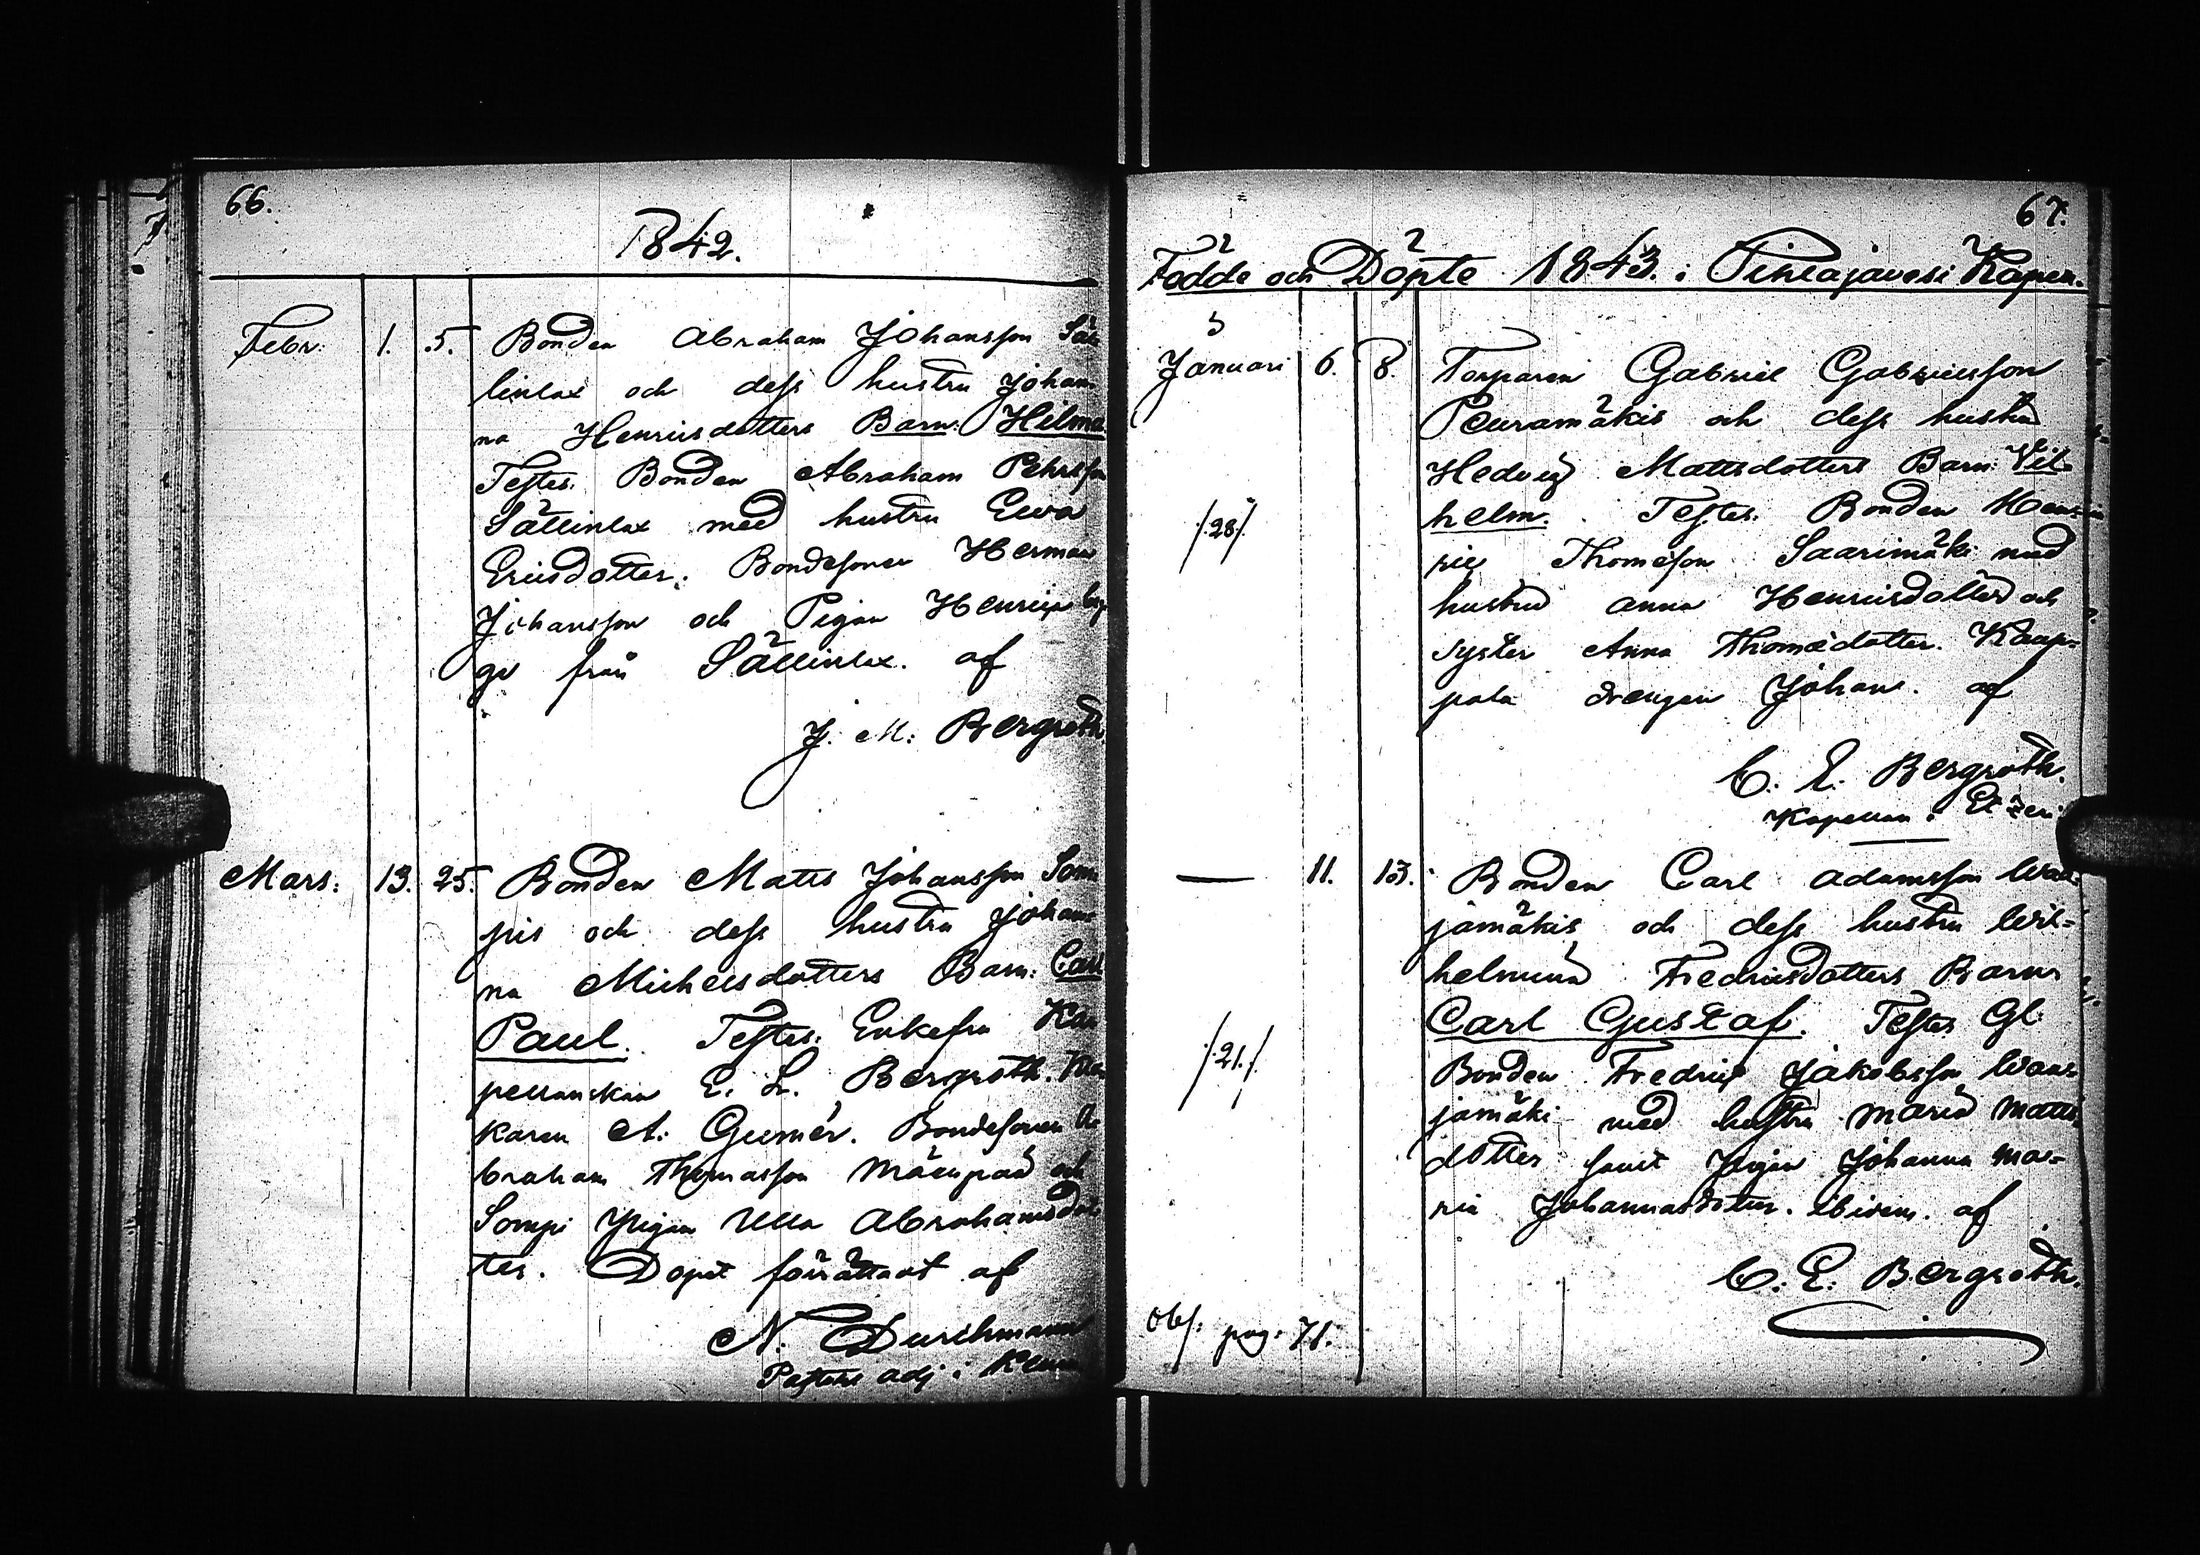 66.
1842.
Febr: 1. 5. Bonden Abraham Johansson Säl
linlax och dess hustru Johan
na Henricsdotters Barn: Hilma
Testes. Bonden Abraham Pehrsson
Sällinlax med hustru Ewa
Ericsdotter. Bondesonen Herman
Johansson och Pigan Henrica
från Sällinlax. af
J. M: Bergroth.
Mars: 13. 25. Bonden Matts Johansson Som
pis och dess hustru Johan
na Michelsdotters Barn: Carl
Paul. Testes. Enkefru Ka
pellanskan E. L. Bergroth.
A. Gumér. Bondesonen A
braham Thomasson Mäenpää och
Sompi Pigan Ulla Abrahamsdot
ter. Dopet förrättadt af
N. Durchmann
Pastors adj: i
67.
Födde och Döpte 1843. i Pihlajavesi Kapell.
Januari 6. 8. Torparen Gabriel Gabrielsson
Peuramäkis och dess hustru
Hedvig Mattsdotters Barn: Vil
helm. Testes. Bonden Hen-
ric Thomeson Saarimäki med
/.28./
hustru Anna Henricsdotter och
syster Anna Thomædotter. Kaup-
pala drengen Johan. af
C. E. Bergroth.
Kapellan i Etzeri
— 11. 13. Bonden Carl Adamsson
jamäkis och dess hustru Wil-
helmina Fredricsdotters Barn
Carl Gustaf. Testes Gl.
/.21./
Bonden Fredric Jakobsson
jamäki med hustru Maria Matts
dotter samt Pigan Johanna Ma-
ria Johannasdotter. ibidem. af
C. E. Bergroth.
Obs: pag: 71.